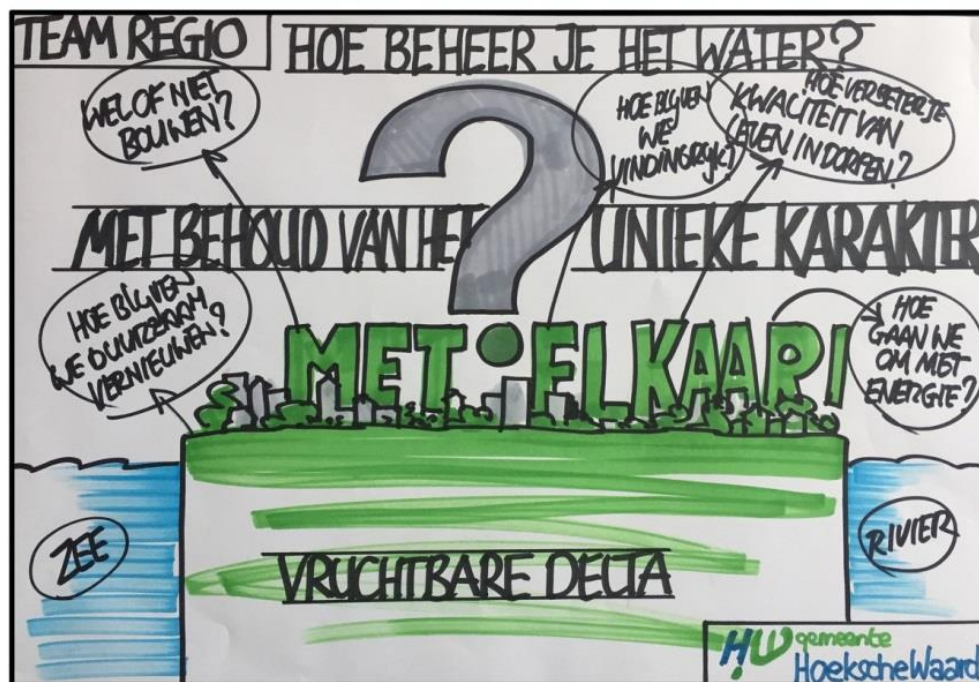 TEAM REGIO
HOE BEHEER JE HET WATER?
WEL OF NIET
BOUWEN?
HOE BLIJVEN
WE
VINDINGRIJK?
HOE VERBETER JE
KWALITEIT VAN
LEVEN IN DORPEN?
MET BEHOUD VAN HET UNIEKE KARAKTER
HOE BLIJVEN
WE DUURZAAM
VERNIEUWEN?
MET ELKAAR!
HOE
GAAN WE
OM MET
ENERGIE?
ZEE
RIVIER
VRUCHTBARE DELTA
HW gemeente
HoekscheWaard